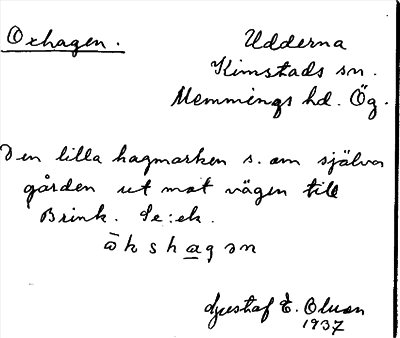 Oxhagen.
Udderna
Kimstads sn.
Memmings hd. Ög.
Den lilla hagmarken s. om själva
gården ut mot vägen till
Brink. Se: ek.
ω̄kshagən
Gustaf E. Olsson
1937